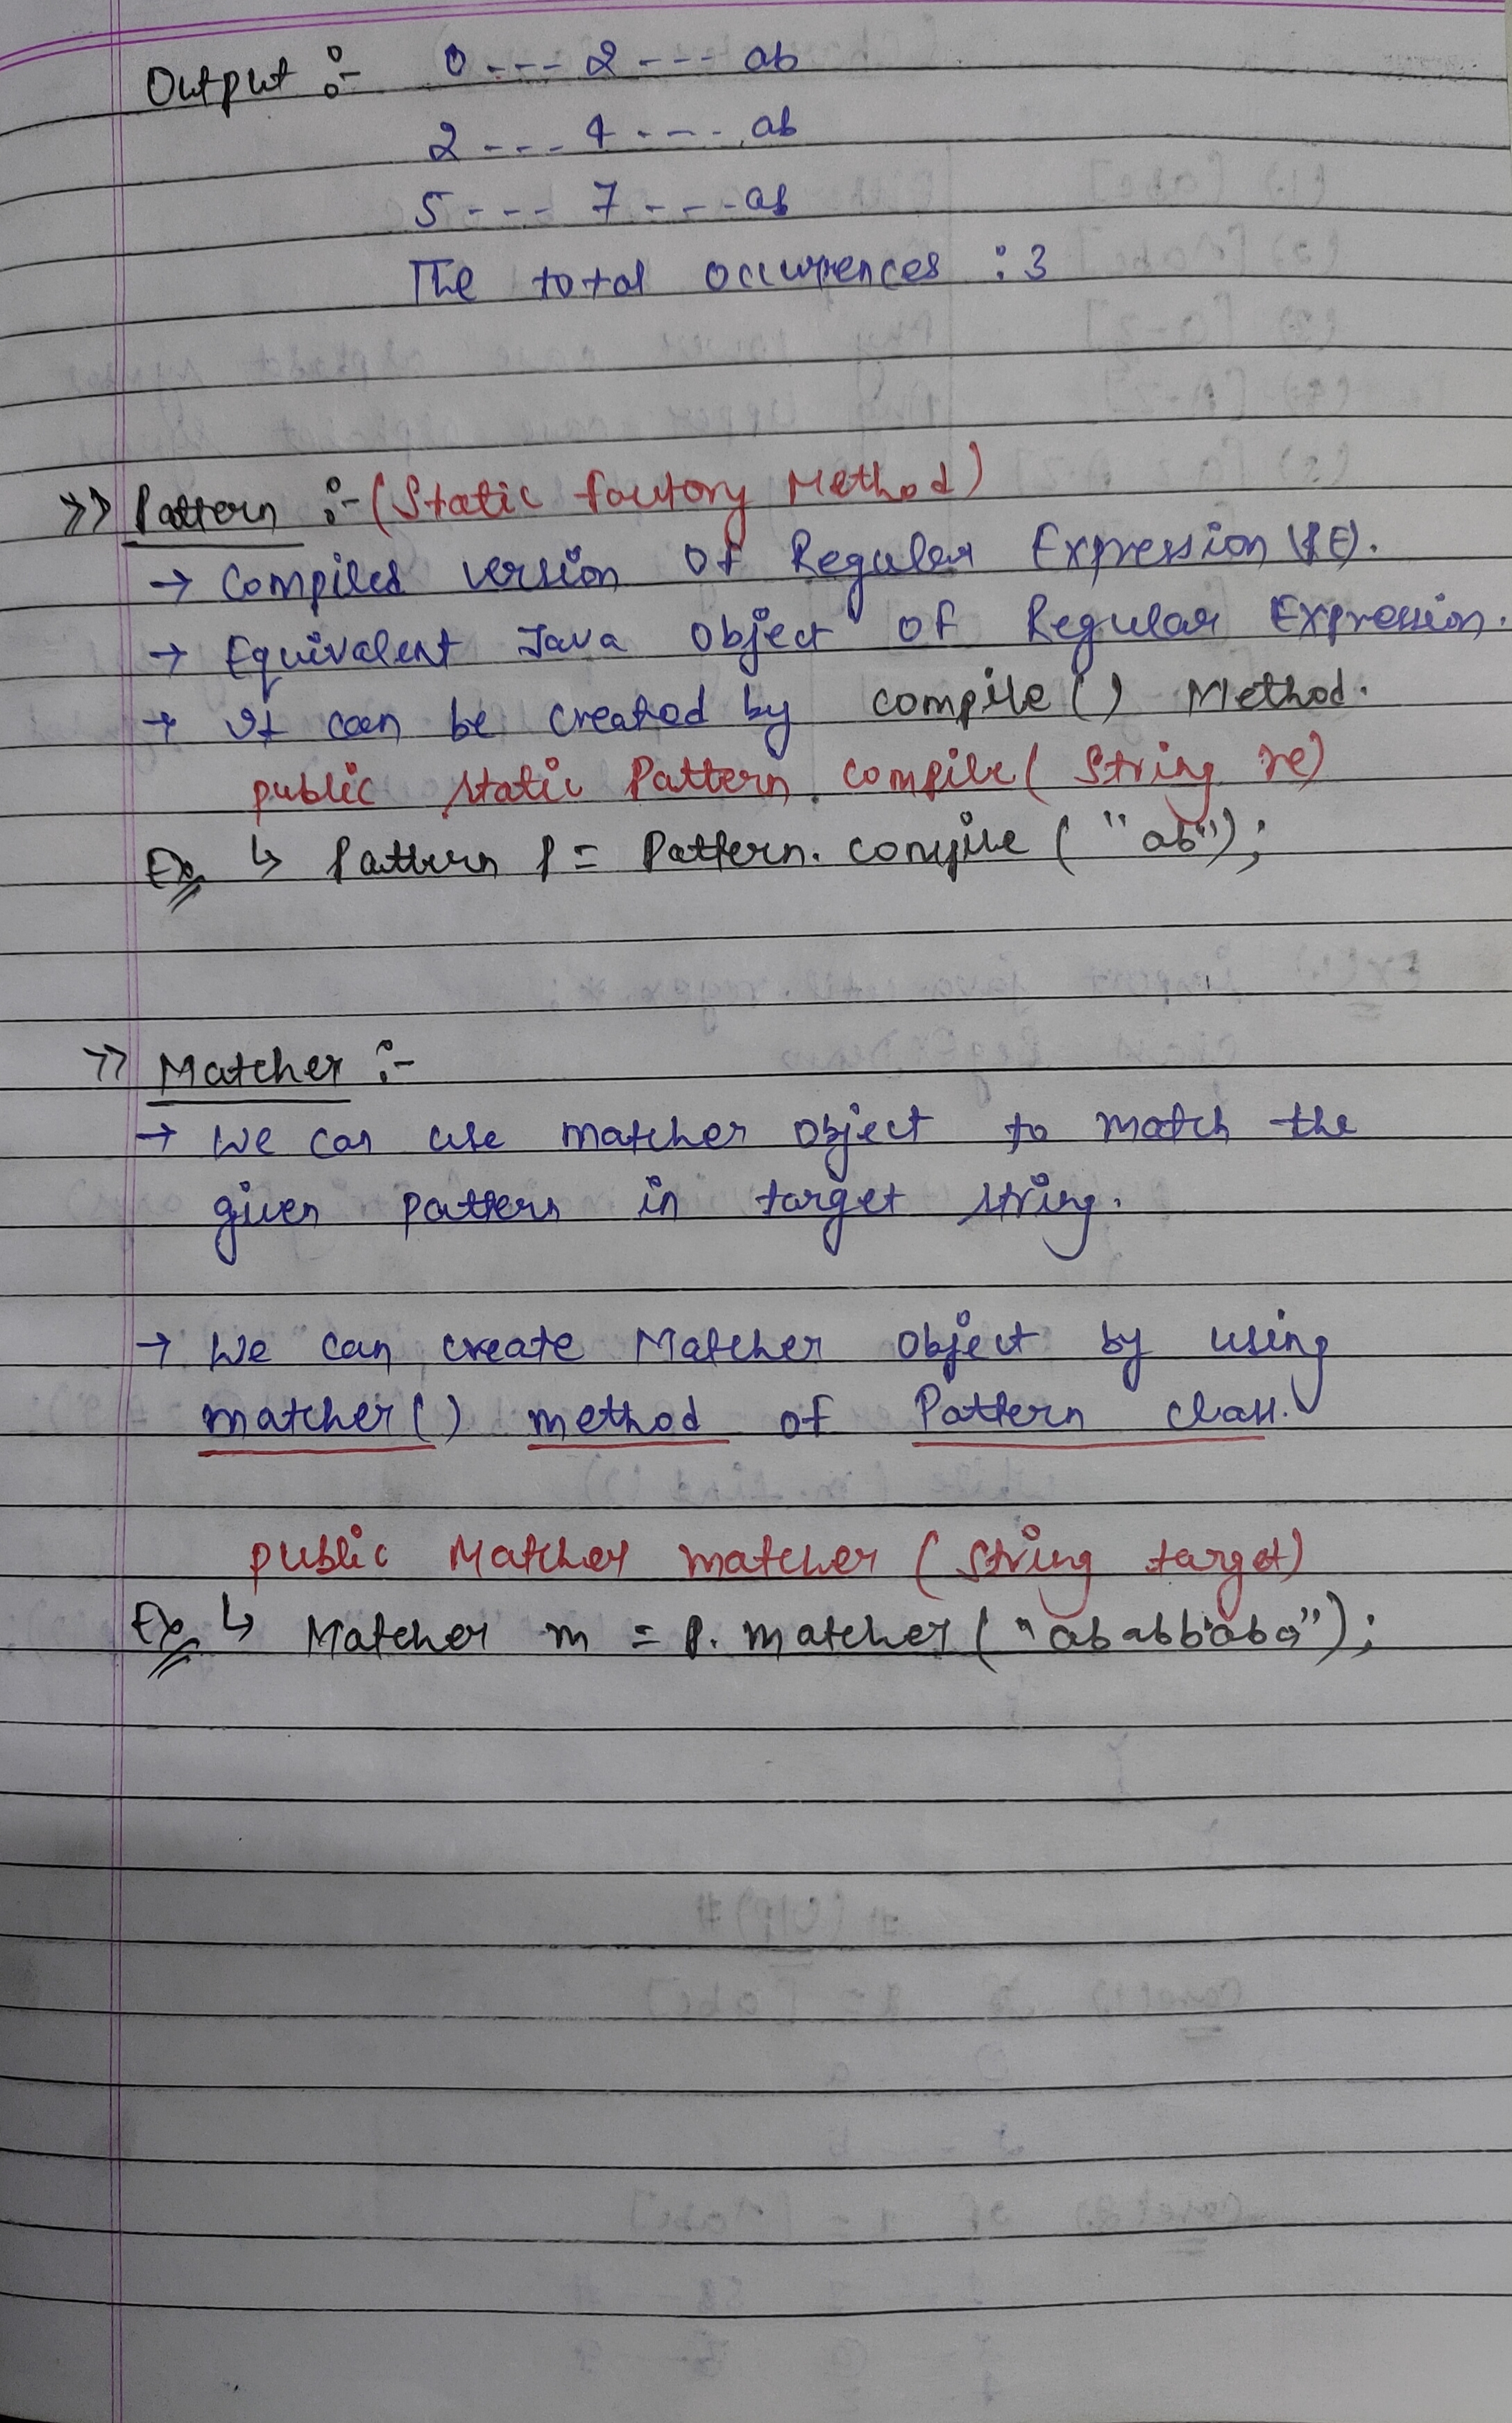 Output :- 0 --- 2 --- ab
2 --- 4 ---- ab
5 --- 7 --- ab
The total occurrences : 3
>> Pattern :- (Static factory Method)
→ Compiled version of Regular Expression (RE).
→ Equivalent Java object of Regular Expression.
→ It can be created by compile() Method.
public static Pattern compile( String re)
Ex ↳ Pattern p = Pattern. compile ( "ab");
>> Matcher :-
→ We can use matcher object to match the
given pattern in target string.
→ We can create Matcher object by using
matcher() method of Pattern class.
public Matcher matcher (String target)
Ex ↳ Matcher m = p. matcher ( "ababbaba");